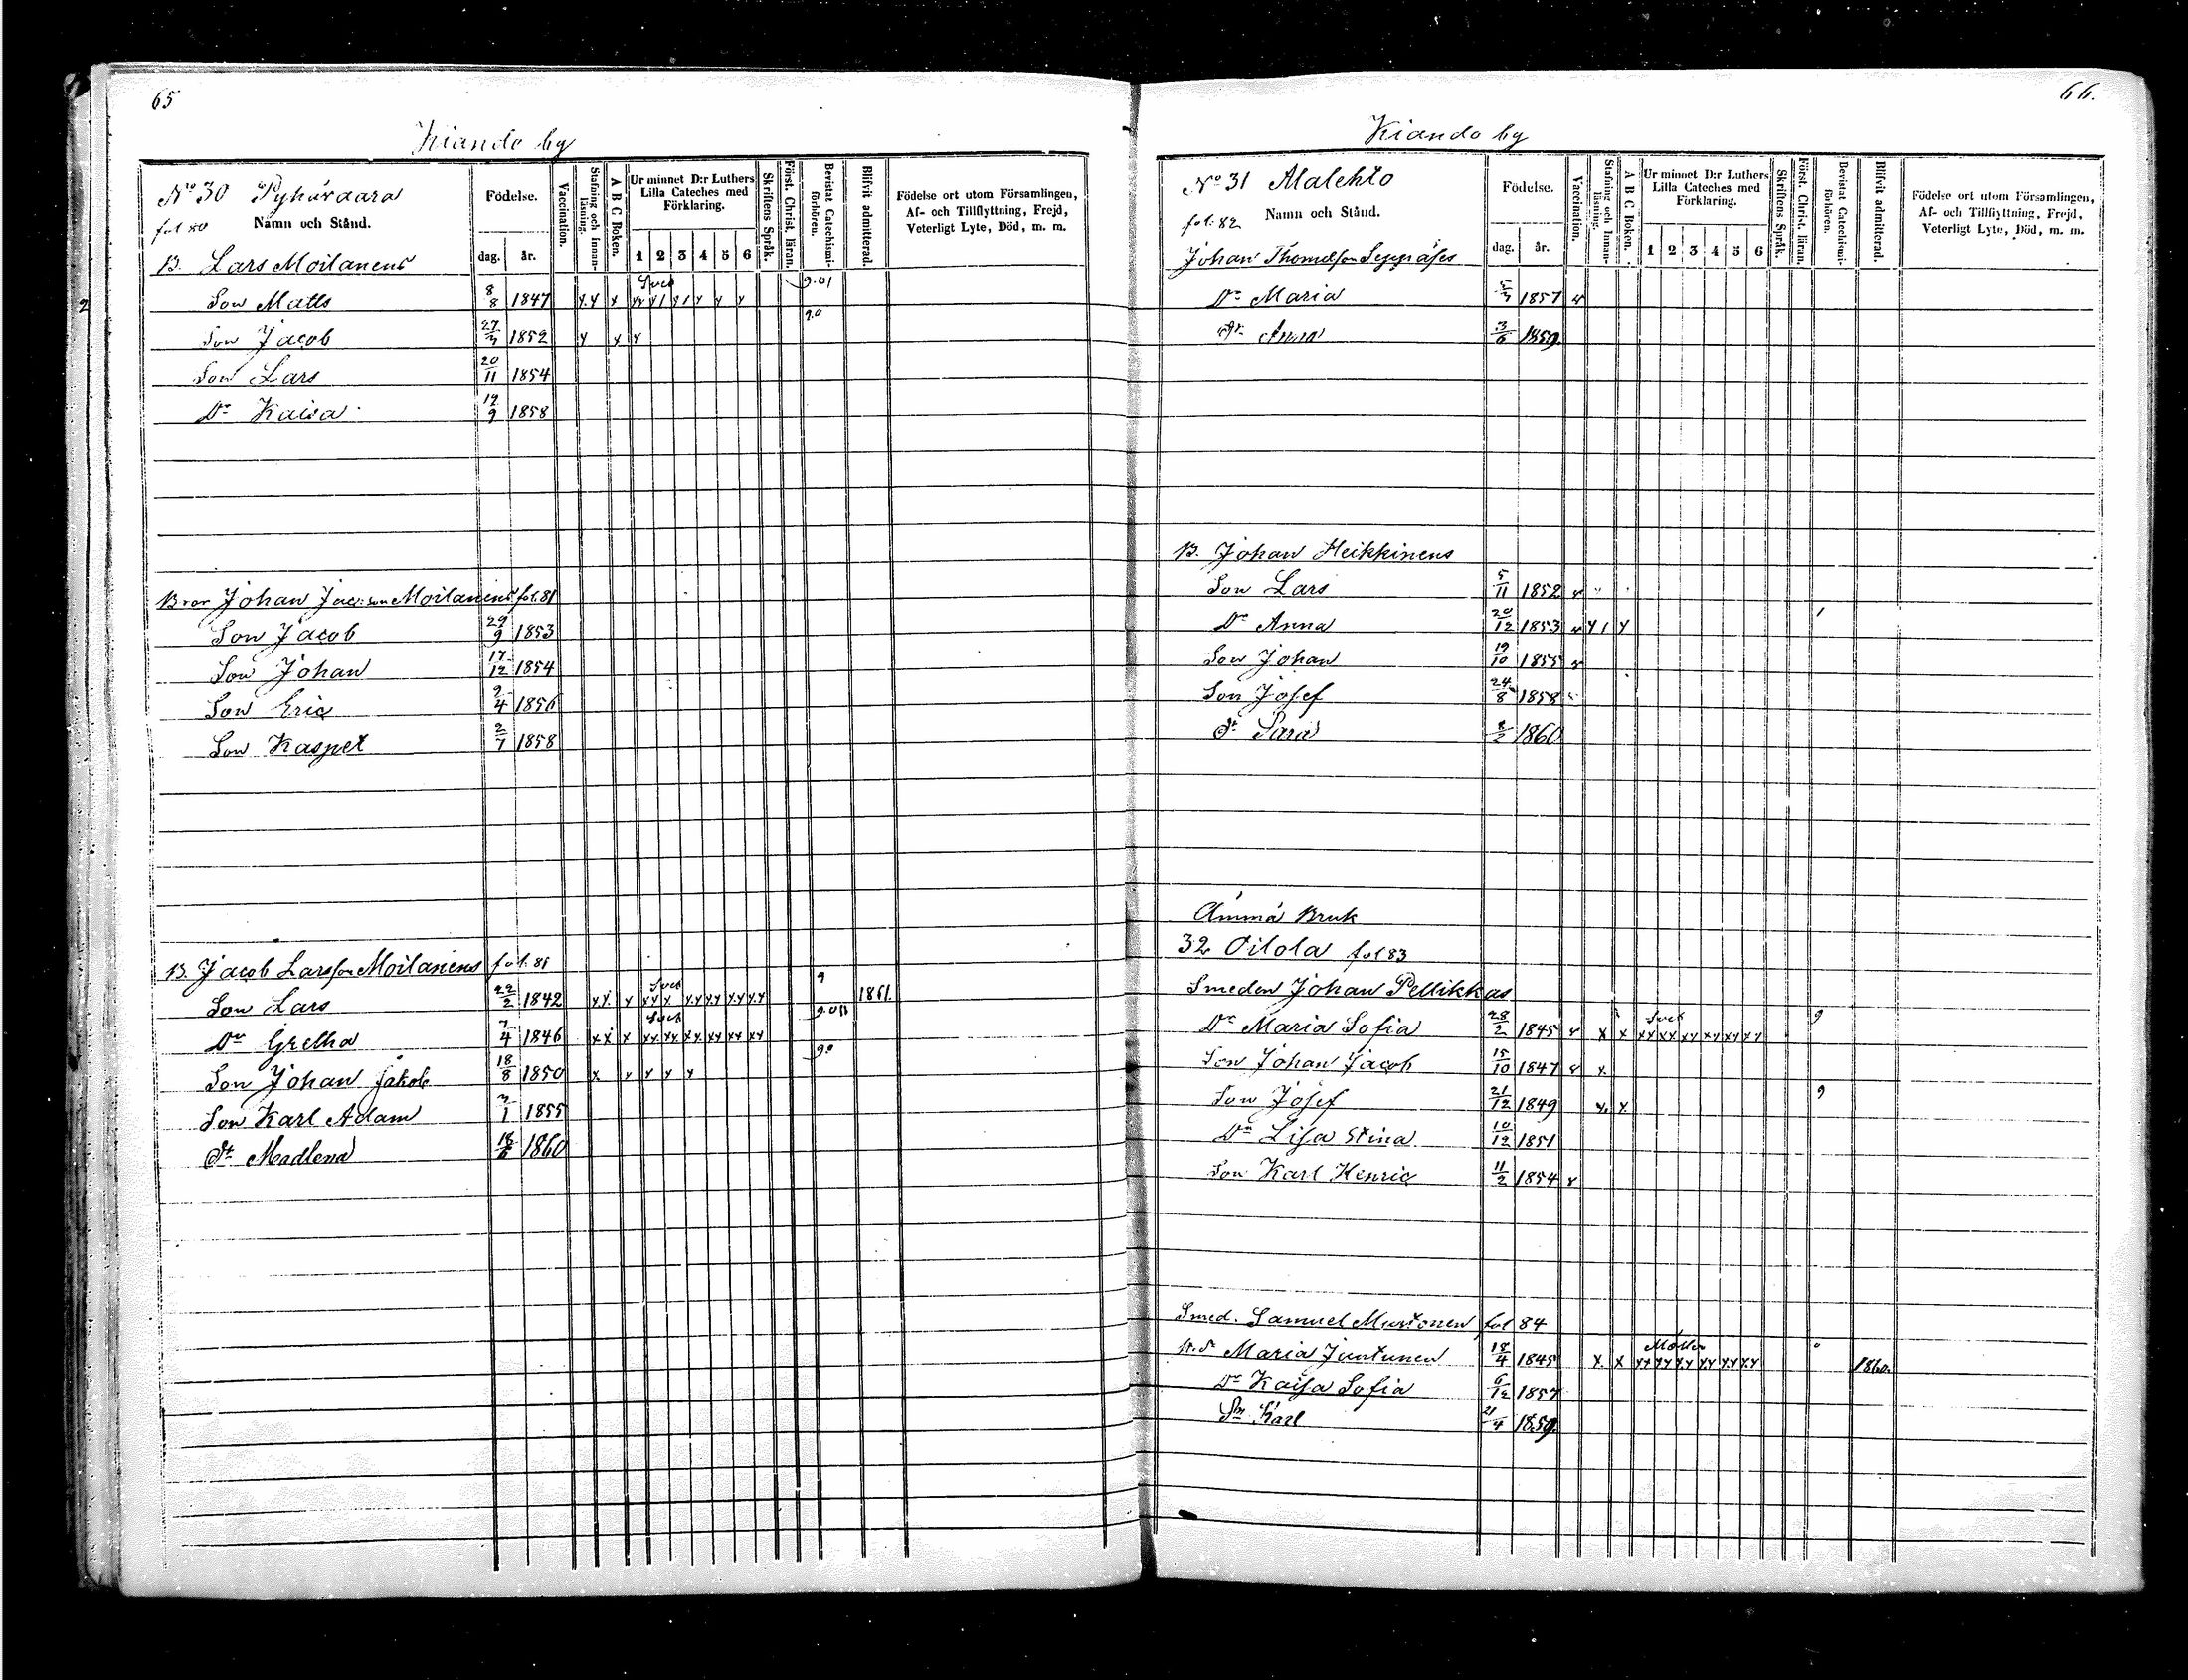 65
Kiando by
No 30 Pyhävaara
fol 80
Namn och Stånd.
Födelse.
dag. år.
Vaccination.
Stafning och Innanläsning.
A B C Boken.
Ur minnet D:r Luthers Lilla Cateches med Förklaring.
1 2 3 4 5 6
Skriftens Språk.
Först. Christ. läran.
Bevistat Catechismiförhören.
Blifvit admitterad.
Födelse ort utom Församlingen, Af- och Tillflyttning, Frejd, Veterligt Lyte, Död, m. m.
B. Lars Moilanens
Son Matts 8/8 1847
Son Jacob 27/7 1852
Son Lars 20/11 1854
Dr Kaisa 1858
Bror Johan Jacobson Moilanens fol. 81
Son Jacob 29/9 1853
Son Johan 17/12 1854
Son Eric 2/4 1856
Son Kasper 2/7 1858
B. Jacob Larsson Moilanens fol. 81
Son Lars 22/2 1842 1861.
Dr Gretha 7/4 1846
Son Johan Jakob 18/8 1850
Son Karl Adam 1855
Dr Madlena 1860
66.
Kiando by
No 31 Alalehto
fol. 82
Namn och Stånd.
Födelse.
dag. år.
Vaccination.
Stafning och Innanläsning.
A B C Boken.
Ur minnet D:r Luthers Lilla Cateches med Förklaring.
1 2 3 4 5 6
Skriftens Språk.
Först. Christ. läran.
Bevistat Catechismiförhören.
Blifvit admitterad.
Födelse ort utom Församlingen, Af- och Tillflyttning, Frejd, Veterligt Lyte, Död, m. m.
Johan Thomasson Seppäses
Dr Maria 1857
Dr Anna 1859
B. Johan Heikkinens
Son Lars 5/11 1852
Dr Anna 20/12 1853
Son Johan 19/10 1855
Son Josef 24/8 1858
Dr Sara 1860
Ämmä Bruk
32 Oilola fol 83
Smeden Johan Pellikkas
Dr Maria Sofia 28/2 1845
Son Johan Jacob 15/10 1847
Son Josef 21/12 1849
Dr Lisa Stina 10/12 1851
Son Karl Henric 11/2 1854
Smed. Samuel Mustonen fol 84
Maria Juntunen 18/4 1845 1860.
Dr Kaisa Sofia 6/12 1857
Sn Karl 21/4 1859